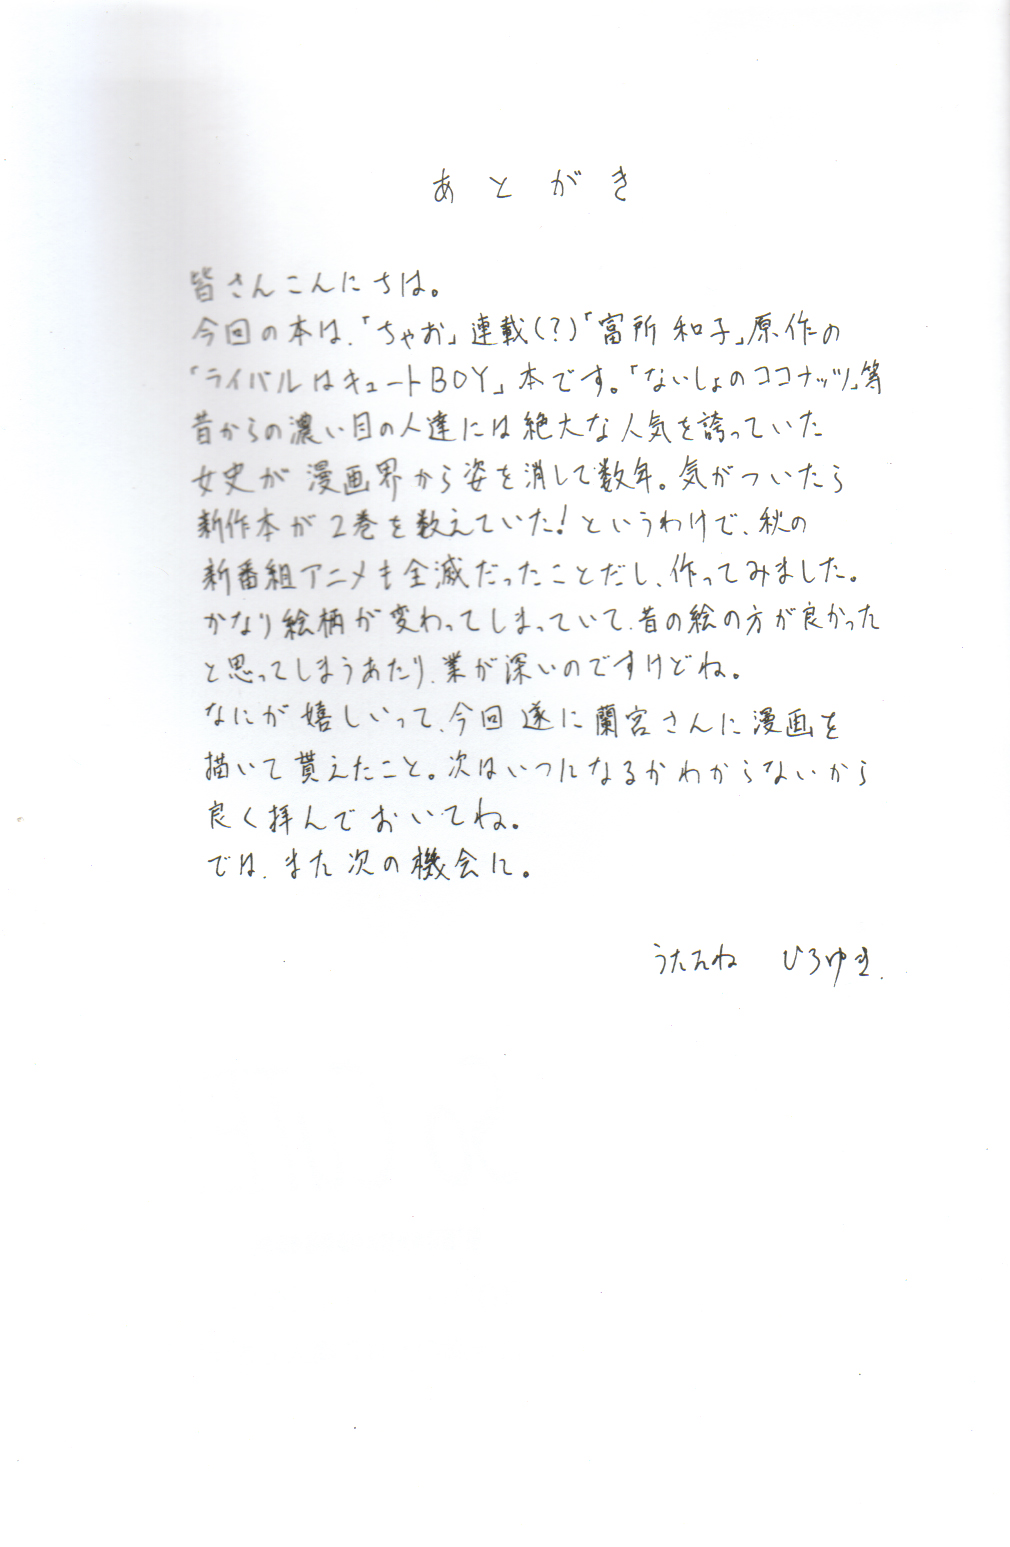 あとがき
皆さんこんにちは。
今回の本は、「ちゃお」連載(?)「富所和子」原作の
「ライバルはキュートBOY」本です。「ないしょのココナッツ」等
昔からの濃い目の人達には絶大な人気を誇っていた
女史が漫画界から姿を消して数年。気がついたら
新作本が2巻を数えていた!というわけで、秋の
新番組アニメも全滅だったことだし、作ってみました。
かなり絵柄が変わってしまっていて、昔の絵の方が良かった
と思ってしまうあたり、業が深いのですけどね。
なにが嬉しいって、今回遂に蘭宮さんに漫画を
描いて貰えたこと。次はいつになるかわからないから
良く拝んでおいてね。
では、また次の機会に。
うたたね ひろゆき.